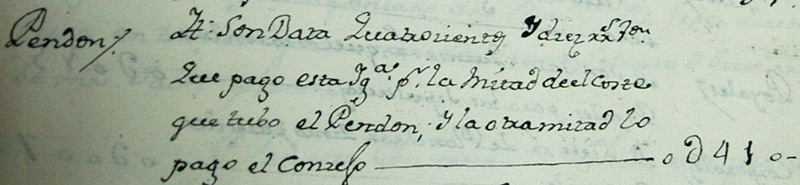 Pendon,, It: Son Data Quatrozientos Y diez rs. Von.
que pago esta Yga. pr. la mitad deel Coste
que tubo el Pendon; Y la otra mitad lo
pago el Conzejo — 0 D 4 1 0 -